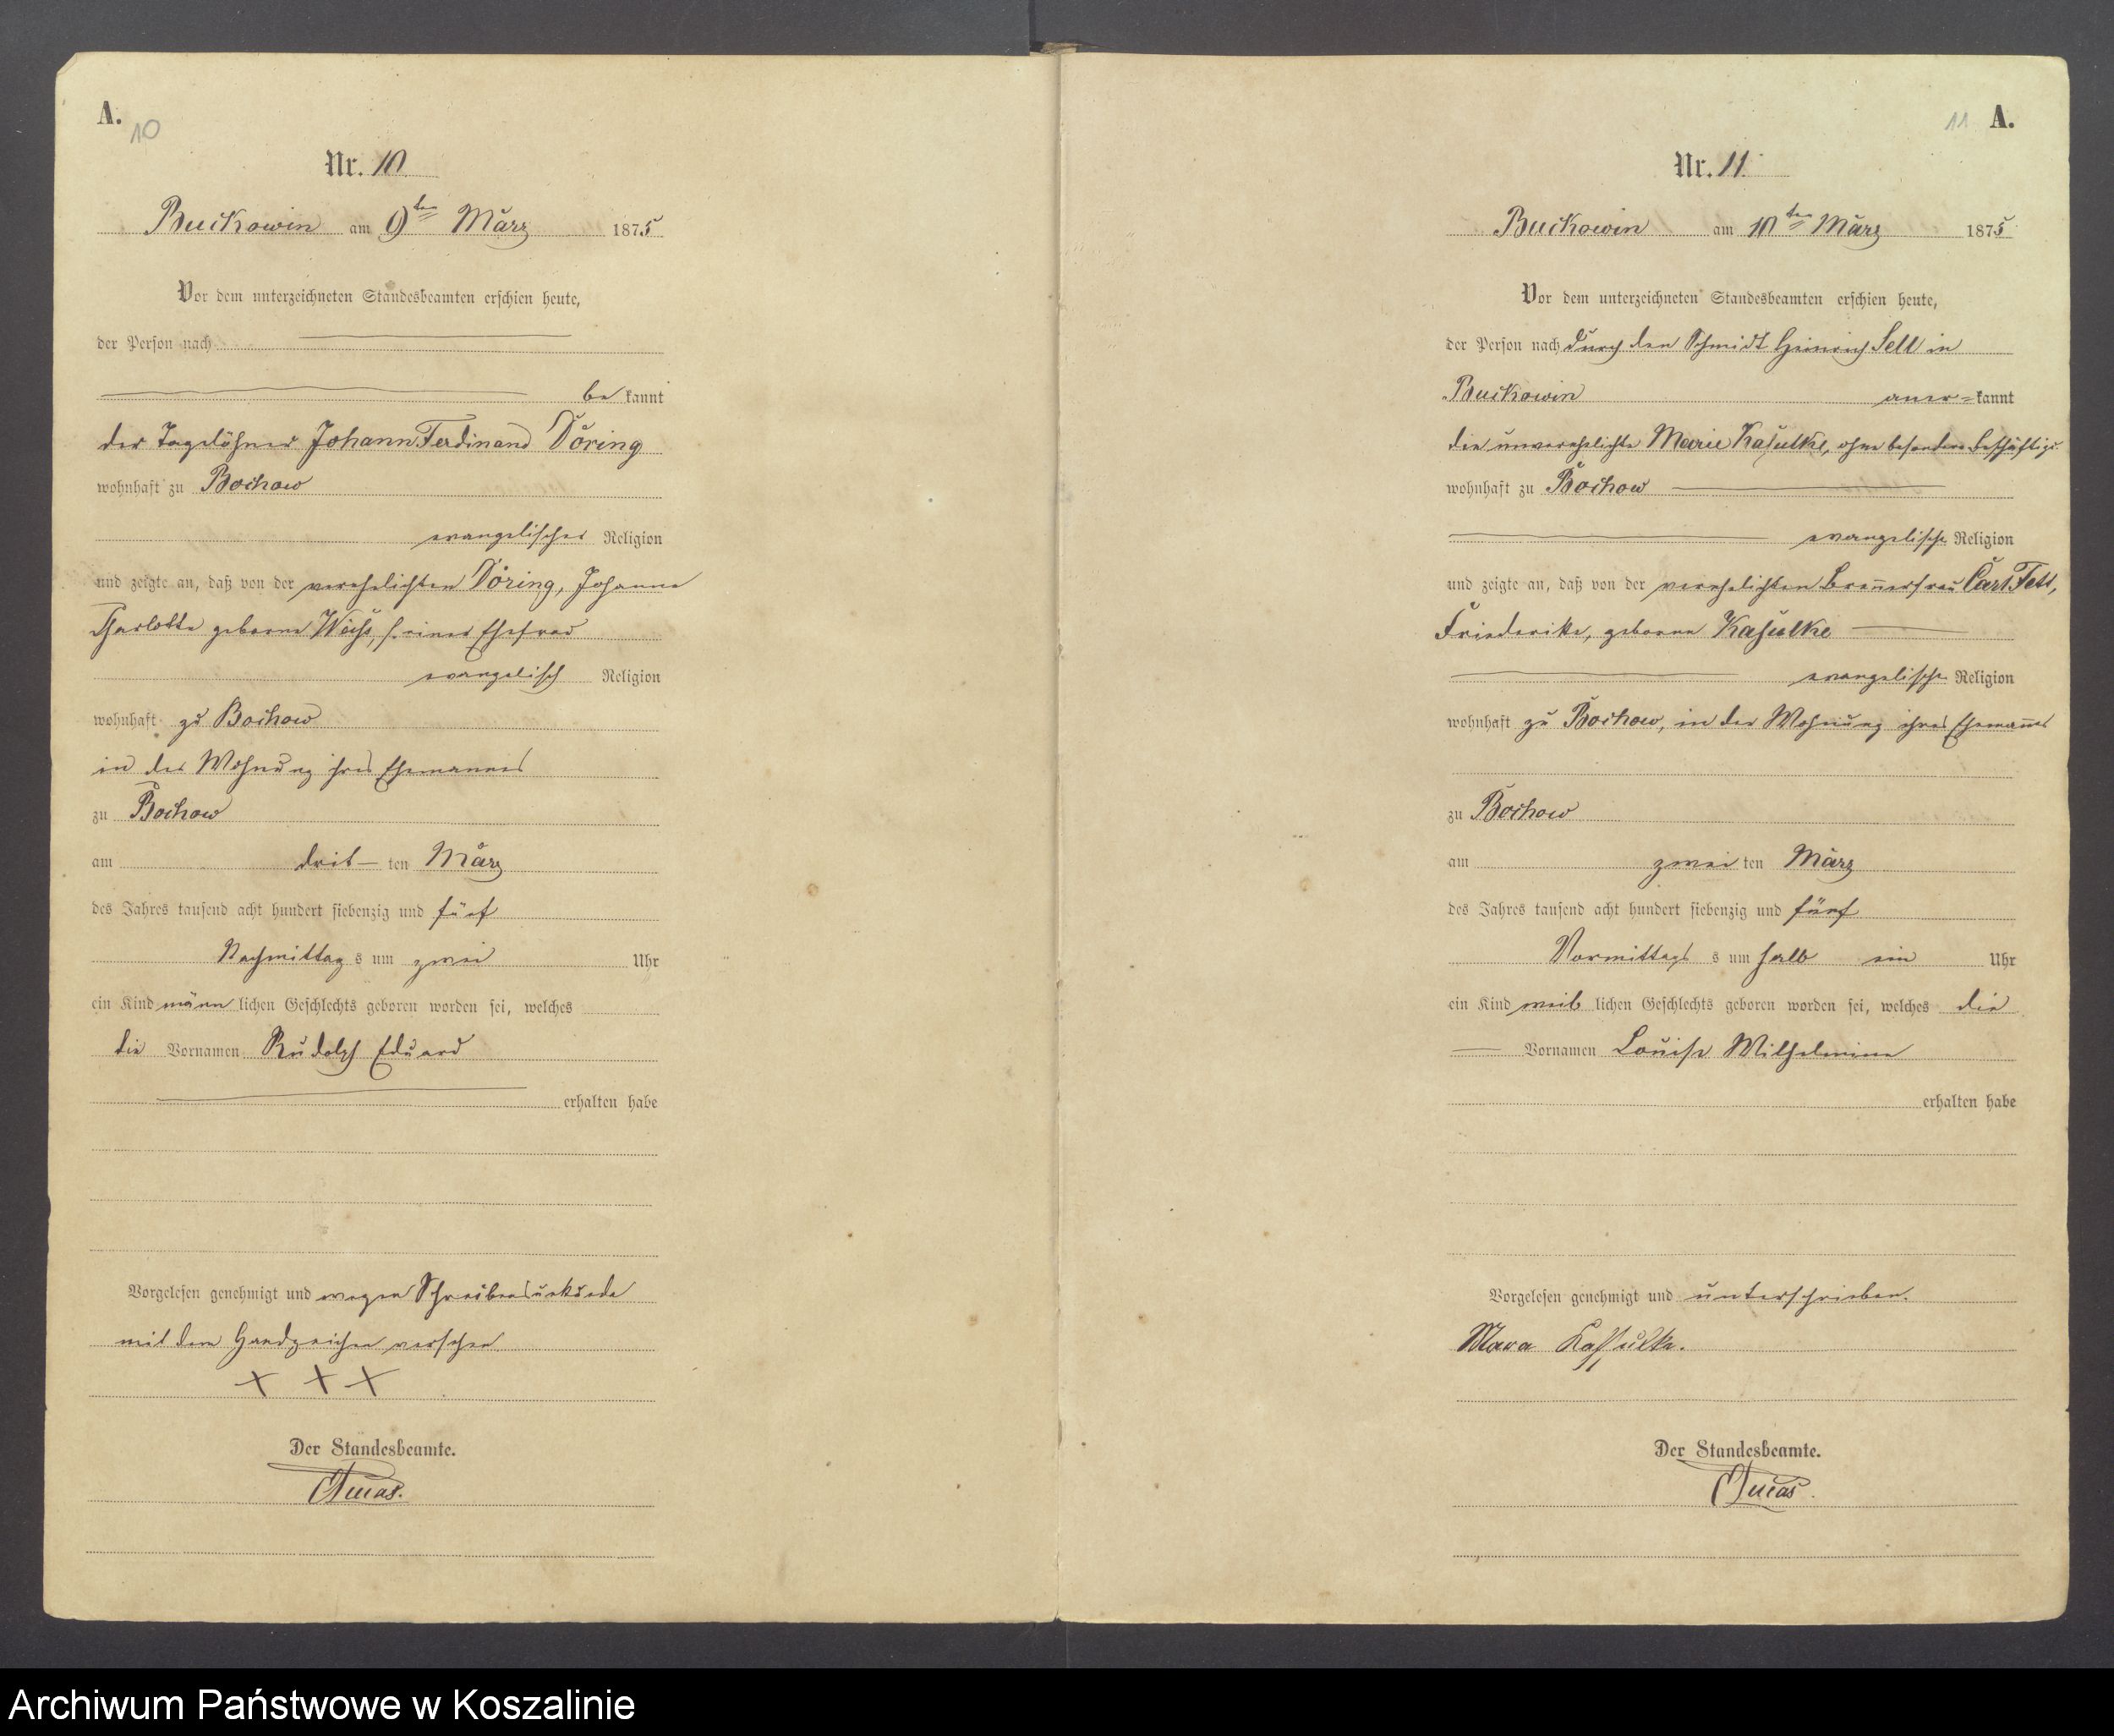 A.
10
Nr. 10.
Buckowin am 9ten März 1875
Vor dem unterzeichneten Standesbeamten erschien heute,
der Person nach
be kannt
der Tagelöhner Johann Ferdinand Döring
wohnhaft zu Bochow
evangelischer Religion
und zeigte an, daß von der verehelichten Döring, Johanne
Charlotte geborne Weiß, seiner Ehefrau
evangelisch Religion
wohnhaft zu Bochow
in der Wohnung ihres Ehemannes
zu Bochow
am drit- ten März
des Jahres tausend acht hundert siebenzig und fünf
Nachmittag s um zwei Uhr
ein Kind männ lichen Geschlechts geboren worden sei, welches
die Vornamen Rudolph Eduard
erhalten habe
Vorgelesen genehmigt und wegen Schreibensunkunde
mit dem Handzeichen versehen
+ + +
Der Standesbeamte.
Lucas.
11 A.
Nr. 11.
Buckowin am 10ten März 1875
Vor dem unterzeichneten Standesbeamten erschien heute,
der Person nach durch den Schmidt Heinrich Sell in
Buckowin aner= kannt
die unverehelichte Marie Kasulke, ohne besondere Beschäftig.
wohnhaft zu Bochow
evangelische Religion
und zeigte an, daß von der verehelichten Brennerfrau Carl
Friederike, geborne Kasulke
evangelische Religion
wohnhaft zu Bochow, in der Wohnung ihres Ehemannes
zu Bochow
am zwei ten März
des Jahres tausend acht hundert siebenzig und fünf
Vormittags s um halb ein Uhr
ein Kind weib lichen Geschlechts geboren worden sei, welches die
Vornamen Louise Wilhelmine
erhalten habe
Vorgelesen genehmigt und unterschrieben.
Kassulke.
Der Standesbeamte.
Lucas.
Archiwum Państwowe w Koszalinie